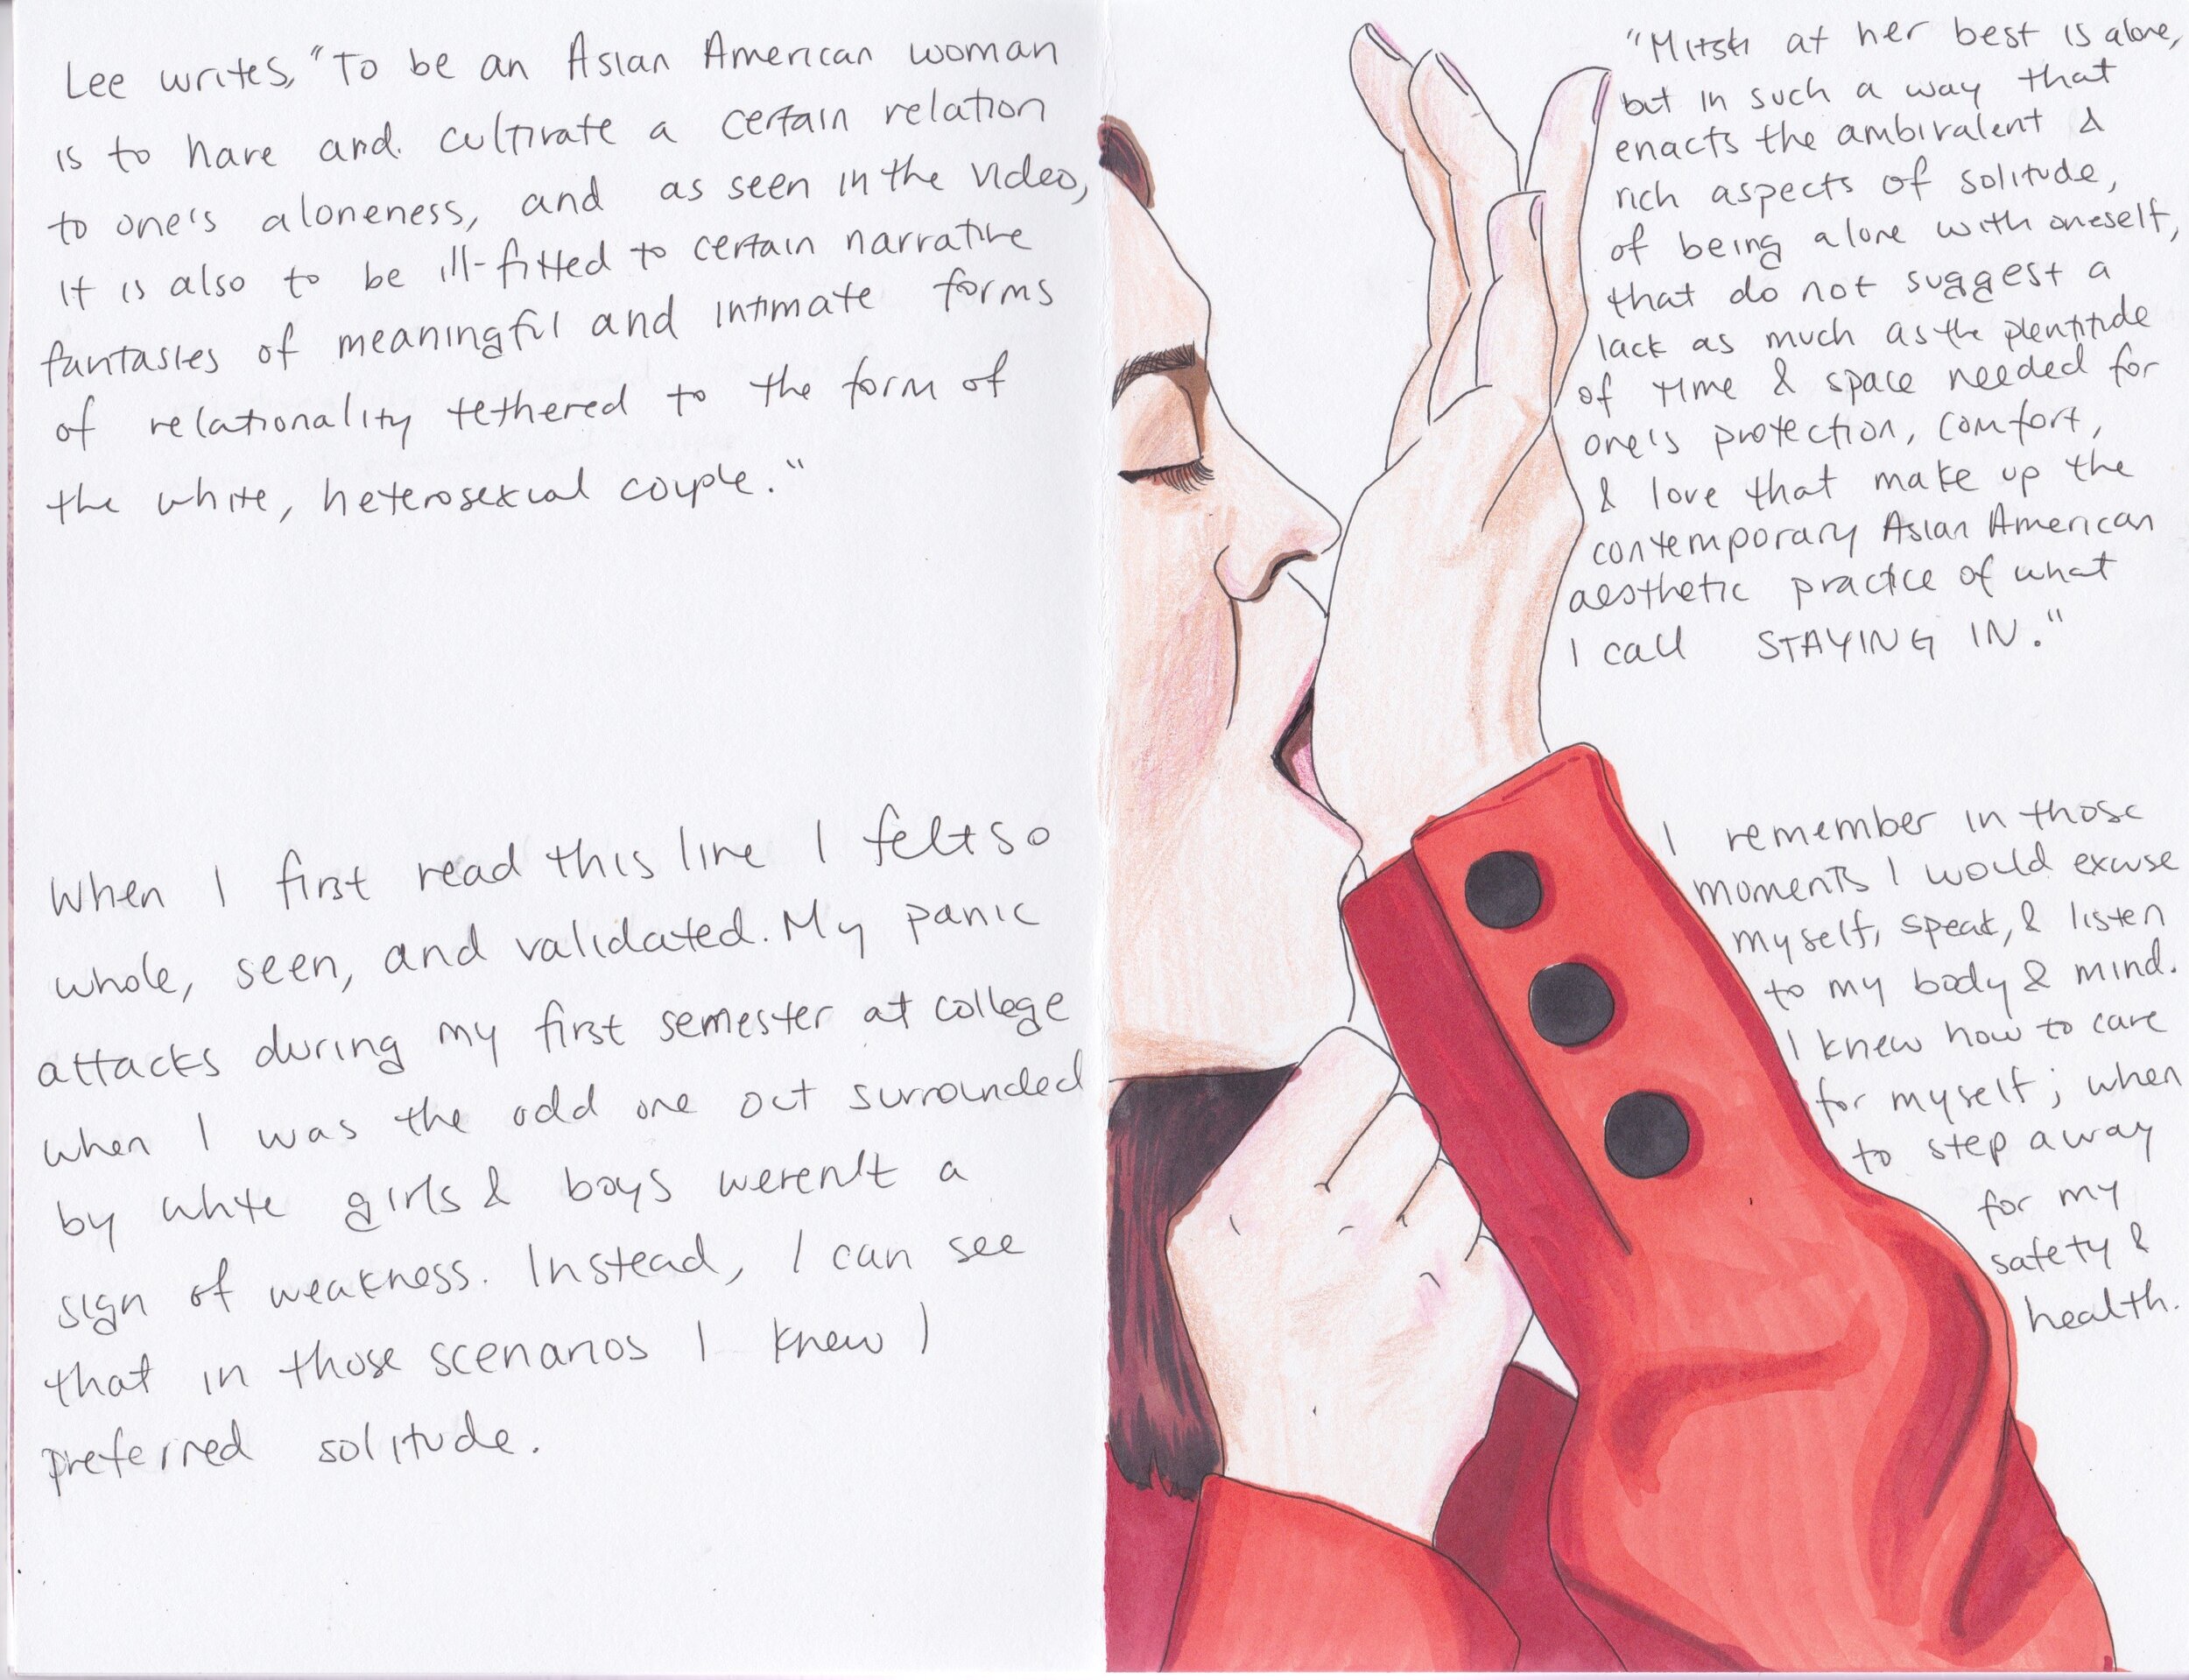 Lee writes, "To be an Asian American woman
is to have and cultivate a certain relation
to one's aloneness, and as seen in the video,
it is also to be ill-fitted to certain narrative
fantasies of meaningful and intimate forms
of relationality tethered to the form of
the white, heterosexual couple."
When I first read this line I felt so
whole, seen, and validated. My panic
attacks during my first semester at college
when I was the odd one out surrounded
by white girls & boys weren't a
sign of weakness. Instead, I can see
that in those scenarios I knew I
preferred solitude.
"Mitski at her best is alone,
but in such a way that
enacts the ambivalent &
rich aspects of solitude,
of being alone with oneself,
that do not suggest a
lack as much as the plentitude
of time & space needed for
one's protection, comfort,
& love that make up the
contemporary Asian American
aesthetic practice of what
I call STAYING IN."
I remember in those
moments I would excuse
myself, speak, & listen
to my body & mind.
I knew how to care
for myself; when
to step away
for my
safety &
health.